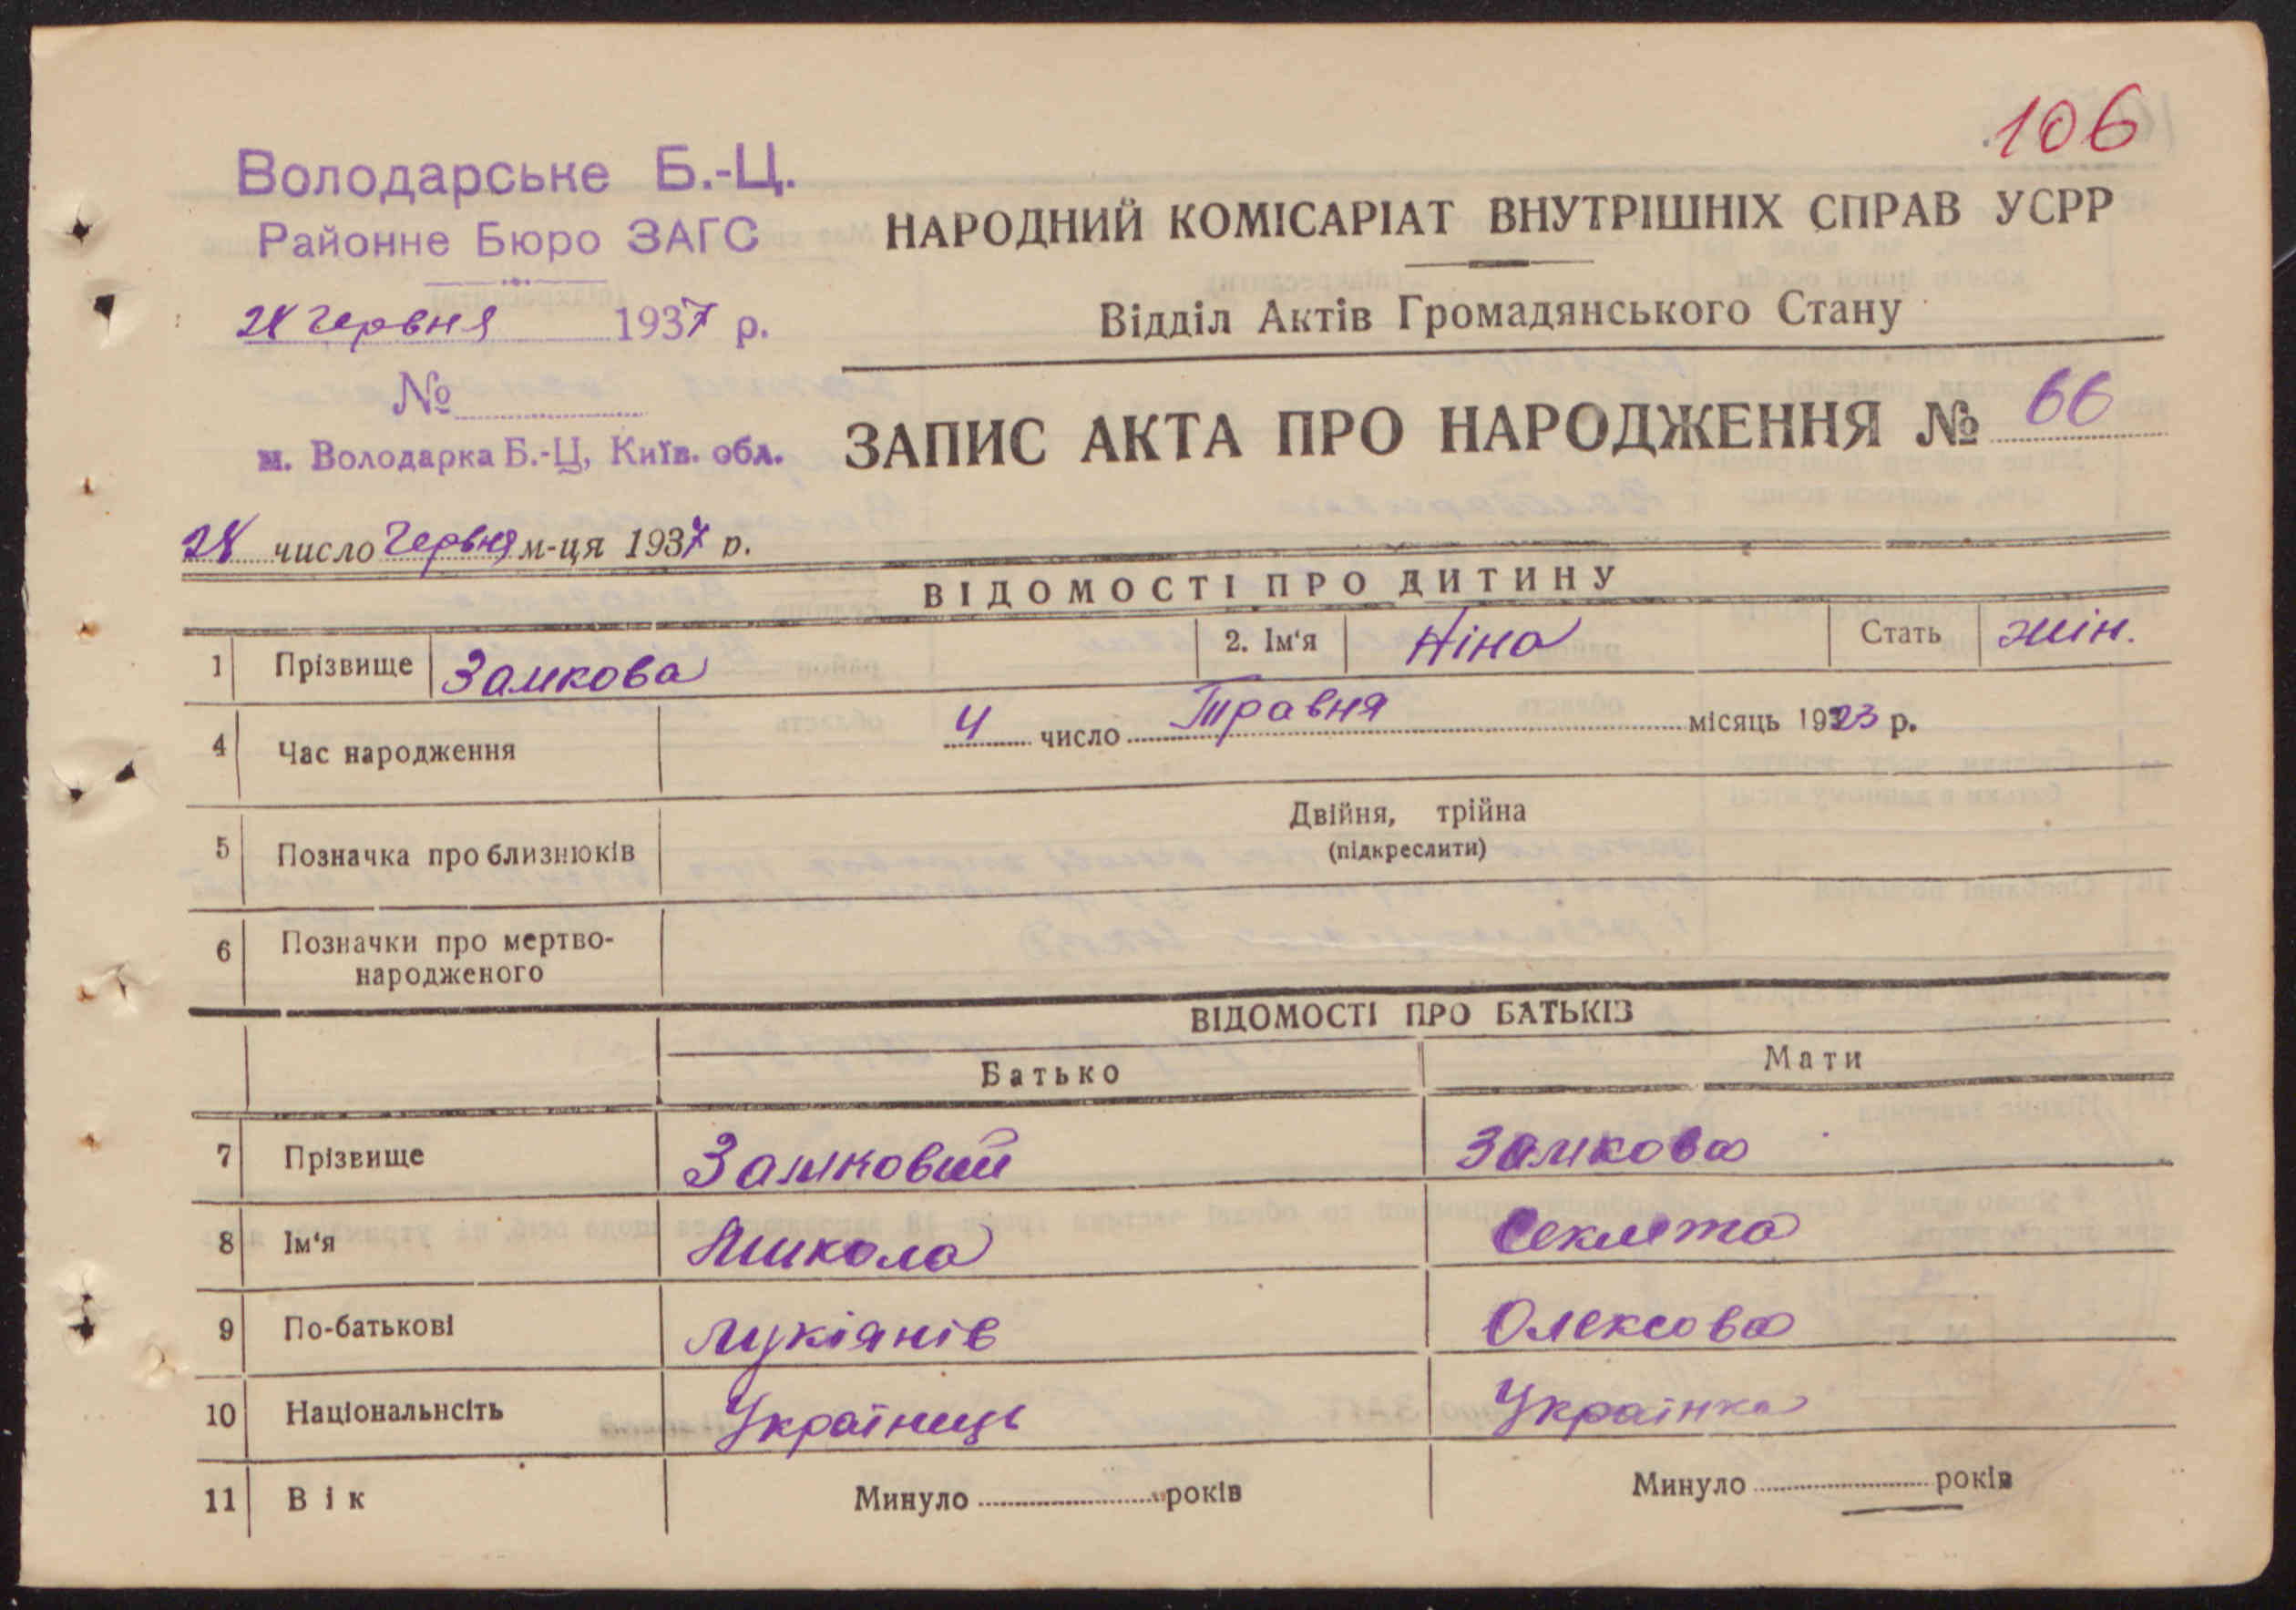 106
Володарське Б.-Ц.
Районне Бюро ЗАГС
28 Червня 1937 р.
№
м. Володарка Б.-Ц, Київ. обл.
НАРОДНИЙ КОМІСАРІАТ ВНУТРІШНІХ СПРАВ УСРР
Відділ Актів Громадянського Стану
ЗАПИС АКТА ПРО НАРОДЖЕННЯ № 66
28 число Червня м-ця 1937 р.
ВІДОМОСТІ ПРО ДИТИНУ
1 Прізвище Замкова 2. Ім‘я Ніна Стать жін.
4 Час народження 4 число Травня місяць 1923 р.
5 Позначка про близнюків Двійня, трійна
(підкреслити)
6 Позначки про мертво-
народженого
ВІДОМОСТІ ПРО БАТЬКІВ
Батько Мати
7 Прізвище Замковий Замкова
8 Ім‘я Микола Секлета
9 По-батькові Лукіянів Олексова
10 Національнсіть Українець Українка
11 Вік Минуло років Минуло років